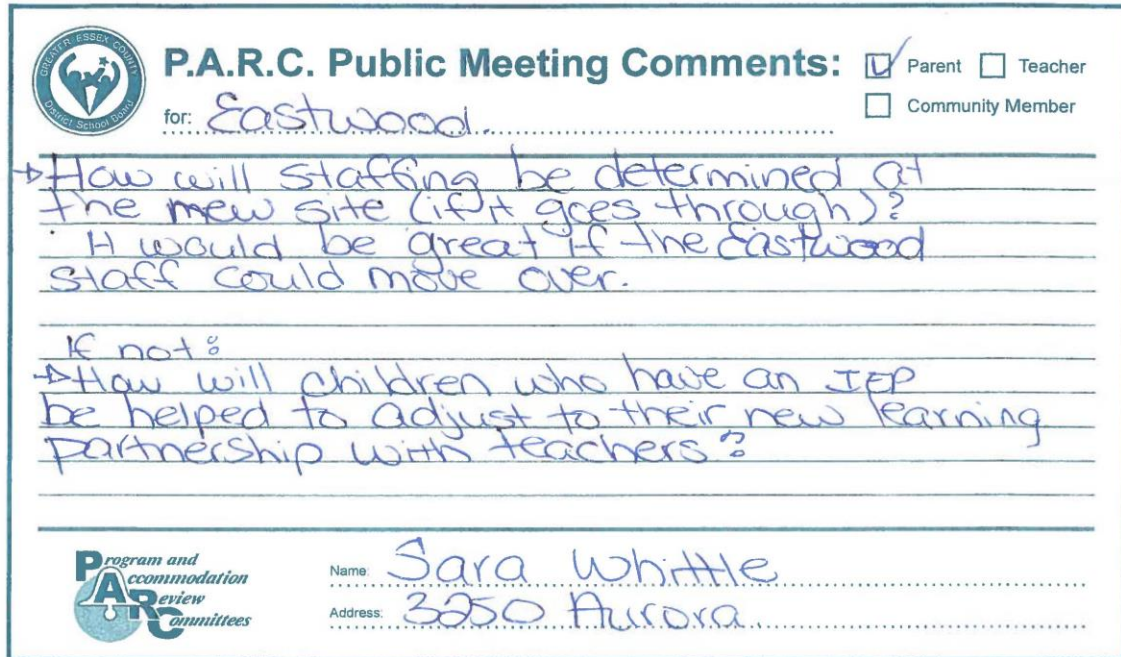 GREATER ESSEX COUNTY
District School Board
P.A.R.C. Public Meeting Comments:
Parent
Teacher
Community Member
for: Eastwood.
How will staffing be determined at
the new site (if it goes through)?
It would be great if the Eastwood
staff could move over.
If not:
How will children who have an IEP
be helped to adjust to their new learning
partnership with teachers?
Program and
Accommodation
Review
Committees
Name: Sara Whittle
Address: 3250 Aurora.